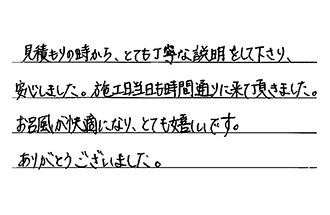 見積もりの時から、とても丁寧な説明をして下さり、
安心しました。施工日当日も時間通りに来て頂きました。
お風呂が快適になり、とても嬉しいです。
ありがとうございました。